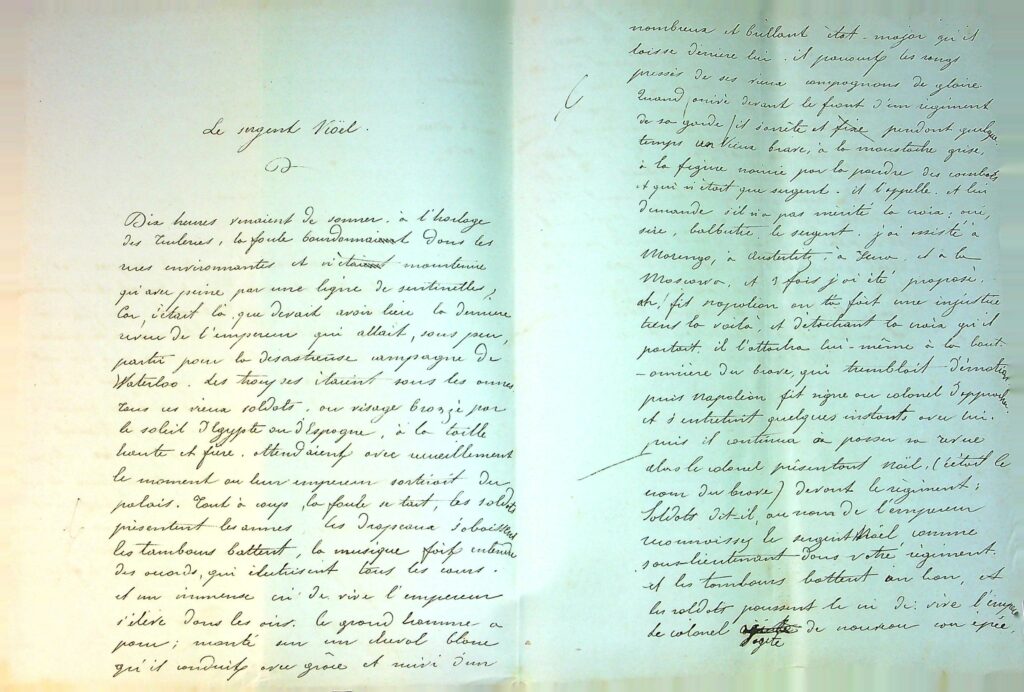 Le sergent Noël.
Dix heures venaient de sonner. à l'horloge
des Tuileries, la foule bourdonnaient dans les
rues environnantes et n'était maintenue
qu'avec peine par une ligne de sentinelles,
Car, c'était là, que devait avoir lieu la dernière
revue de l'empereur qui allait, sous peu,
partir pour la désastreuse campagne de
Waterloo. Les troupes étaient sous les armes
tous ces vieux soldats. au visage bronzé par
le soleil d'Egypte ou d'Espagne, à la taille
haute et fière. attendaient avec recueillement
le moment ou leur empereur sortirait du
palais. Tout à coups, la foule se tait, les soldats
présentent les armes les drapeaux s'abaissent
les tambours battent, la musique fait entendre
des accords, qui électrisent tous les cœurs.
et un immense cri de vive l'empereur
s'élève dans les airs. le grand homme a
paru; monté sur un cheval blanc
qu'il conduit avec grâce et suivi d'un
6
nombreux et brillant état-major qu'il
laisse derrière lui. il parcourt les rangs
pressés de ses vieux compagnons de gloire.
Quand, arrivé devant le front d'un régiment
de sa garde, il s'arrête et fixe pendant quelque
temps un vieux brave, à la moustache grise,
à la figure noircie par la poudre des combats
et qui n'était que sergent. il l'appelle. et lui
demande s'il n'a pas mérité la croix; oui,
sire, balbutie, le sergent. j'ai assisté à
Marengo, à Austerlitz, à Iena. et à la
Moscowa, et 3 fois j'ai été proposé.
ah! fit napoléon on t'a fait une injustice
tiens la voilà, et détachant la croix qu'il
portait. il l'attacha lui-même à la bout-
-onnière du brave, qui tremblait d'émotion
puis napoléon fit signe au colonel d'approcher.
et s'entretint quelques instants avec lui.
puis il continua à passer sa revue
alors le colonel présentant Noël, (c'était le
nom du brave) devant le régiment:
Soldats dit-il, au nom de l'empereur
reconnaissez le sergent Noël comme
sous-lieutenant dans votre régiment.
et les tambours battent un ban, et
les soldats poussent le cri de vive l'empereur
le colonel agite de nouveau son épée,